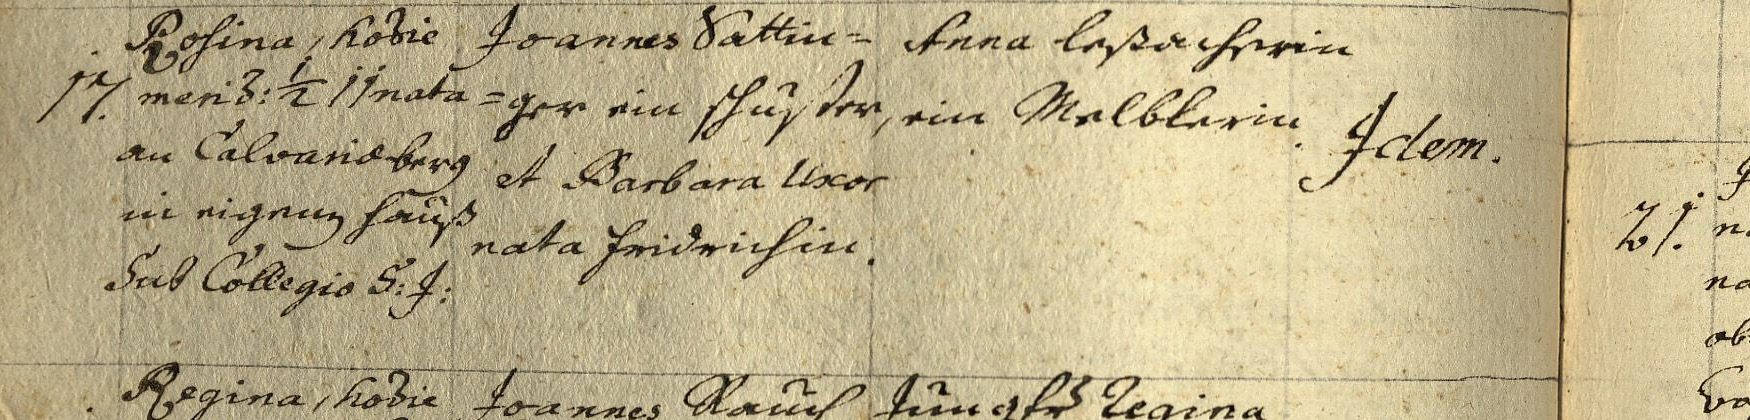 17.
Rosina, hodie
merid: 1/2 11 nata
am Calvariæberg
in eigenem hauß
Sub Collegio S: J:
Joannes Sattin=
=ger ein schuster,
et Barbara Uxor
nata fridrichin.
Anna leßacherin
ein Melblerin.
Idem.
Regina, hodie
Joannes Rauch
Jungfr Regina
21.